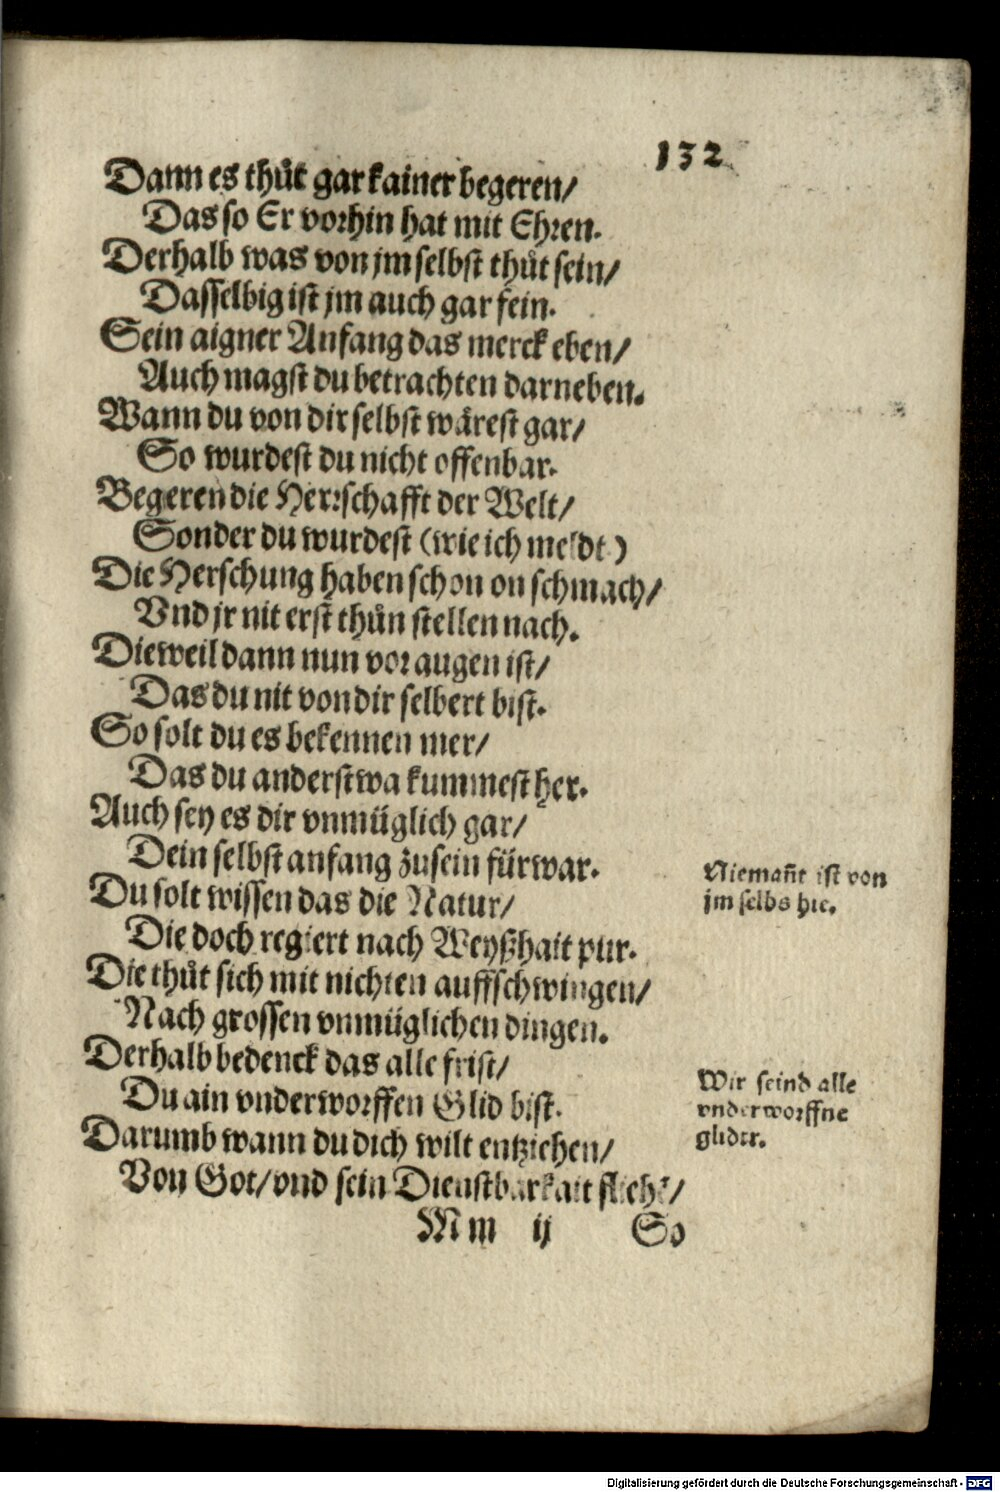 132
Dann es thůt gar kainer begeren/
Das so Er vorhin hat mit Ehren.
Derhalb was von jm selbst thůt sein/
Dasselbig ist jm auch gar fein.
Sein aigner Anfang das merck eben/
Auch magst du betrachten darneben.
Wann du von dir selbst wärest gar/
So wurdest du nicht offenbar.
Begeren die Herrschafft der Welt/
Sonder du wurdest (wie ich meldt)
Die Herschung haben schon on schmach/
Vnd jr nit erst thůn stellen nach.
Dieweil dann nun vor augen ist/
Das du nit von dir selbert bist.
So solt du es bekennen mer/
Das du anderstwa kummest her.
Auch sey es dir vnmüglich gar/
Dein selbst anfang zusein fürwar.
Niemañt ist von
jm selbs hie.
Du solt wissen das die Natur/
Die doch regiert nach Weyßhait pur.
Die thůt sich mit nichten auffschwingen/
Nach grossen vnmüglichen dingen.
Derhalb bedenck das alle frist/
Du ain vnderworffen Glid bist.
Wir seind alle
vnderworffne
glider.
Darumb wann du dich wilt entziehen/
Von Got/vnd sein Dienstbarkait fliehē/
Mm ij So
Digitalisierung gefördert durch die Deutsche Forschungsgemeinschaft - DFG